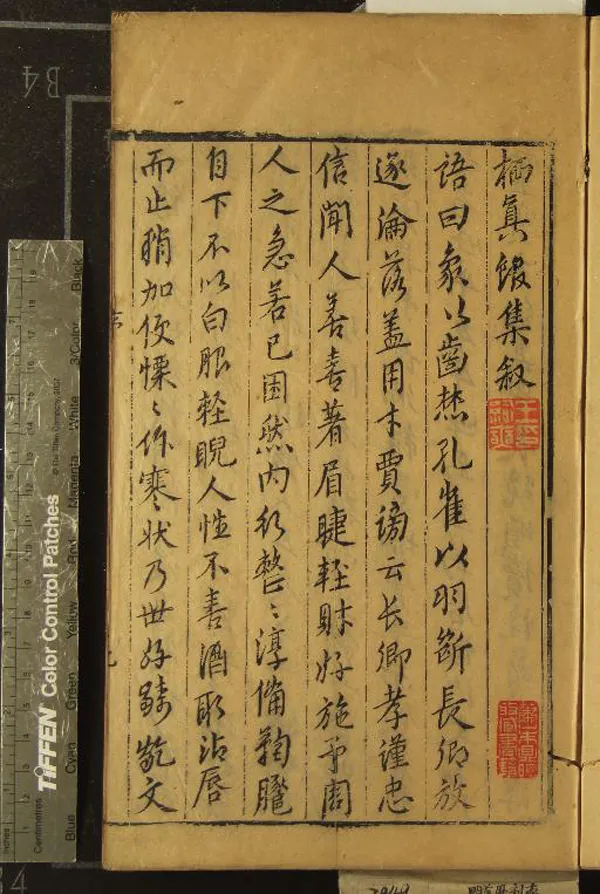 栖真舘集叙
語曰象以齒焚孔雀以羽斷長卿放
遂淪落蓋用才賈謗云长卿孝謹忠
信聞人善喜著眉睫輕財好施予周
人之急若已困然内行整〻淳備鞠
自下不以白眼輕睨人性不善酒取沾唇
而止稍加便慄〻作寒狀乃世好齮齕文
序
B4
TIFFEN Color Control Patches
© The Tiffen Company, 2007
Inches
Centimetres
Blue Cyan Green Yellow Red Magenta White 3/Color Black